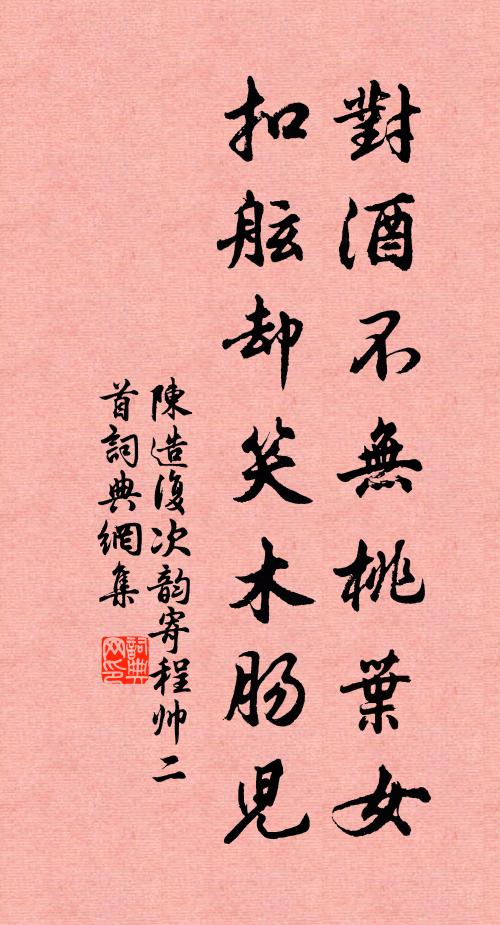 對酒不無桃葉女
扣舷却笑木腸兒
陳造復次韵寄程帅二
首詞典網集
詞典
网印